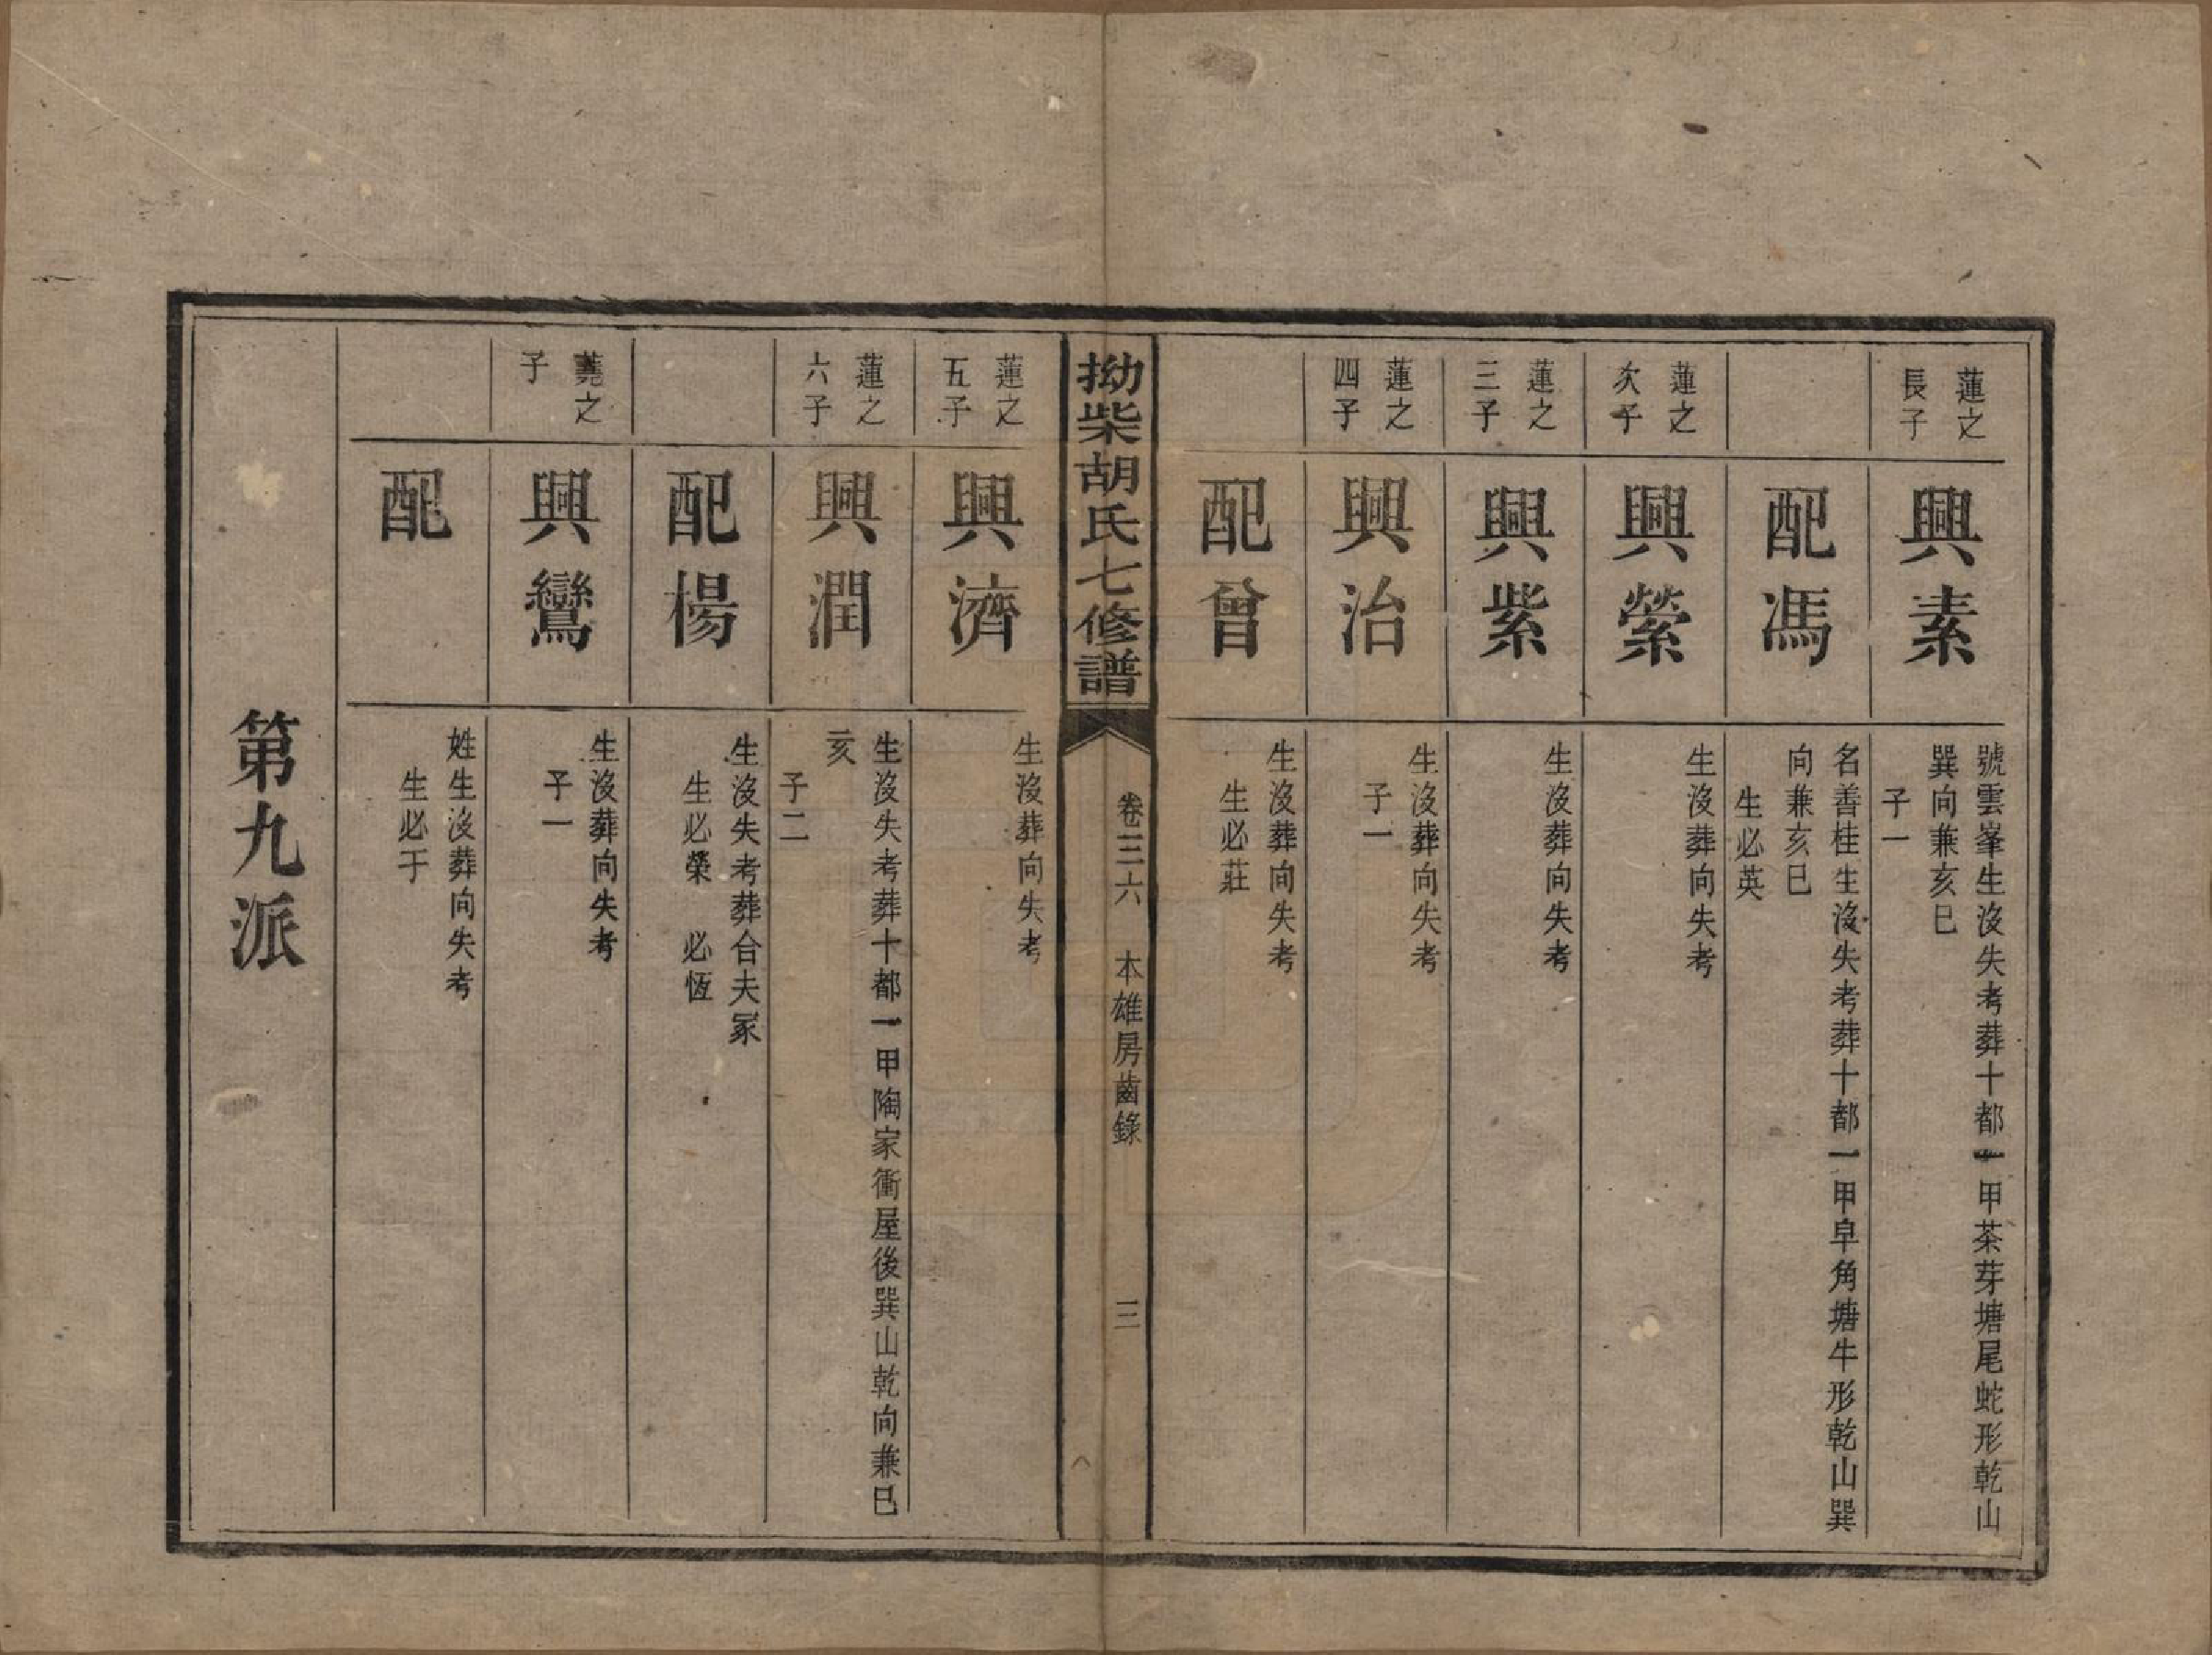 蓮之
長子
興素
號雲峯生沒失考葬十都一甲茶芽塘尾蛇形乾山
巽向兼亥巳
子一
配馮
名善桂生沒失考葬十都一甲皁角塘牛形乾山巽
向兼亥巳
生必英
蓮之
次子
興縈
生沒葬向失考
蓮之
三子
興紫
生沒葬向失考
蓮之
四子
興治
生沒葬向失考
子一
配曾
生沒葬向失考
生必莊
拗柴胡氏七修譜
卷三六
本雄房齒錄
三
蓮之
五子
興濟
生沒葬向失考
蓮之
六子
興潤
生沒失考葬十都一甲陶家衝屋後巽山乾向兼巳
亥
子二
配楊
生沒失考葬合夫冢
生必榮 必恆
蕘之
子
興鸞
生沒葬向失考
子一
配
姓生沒葬向失考
生必于
第九派